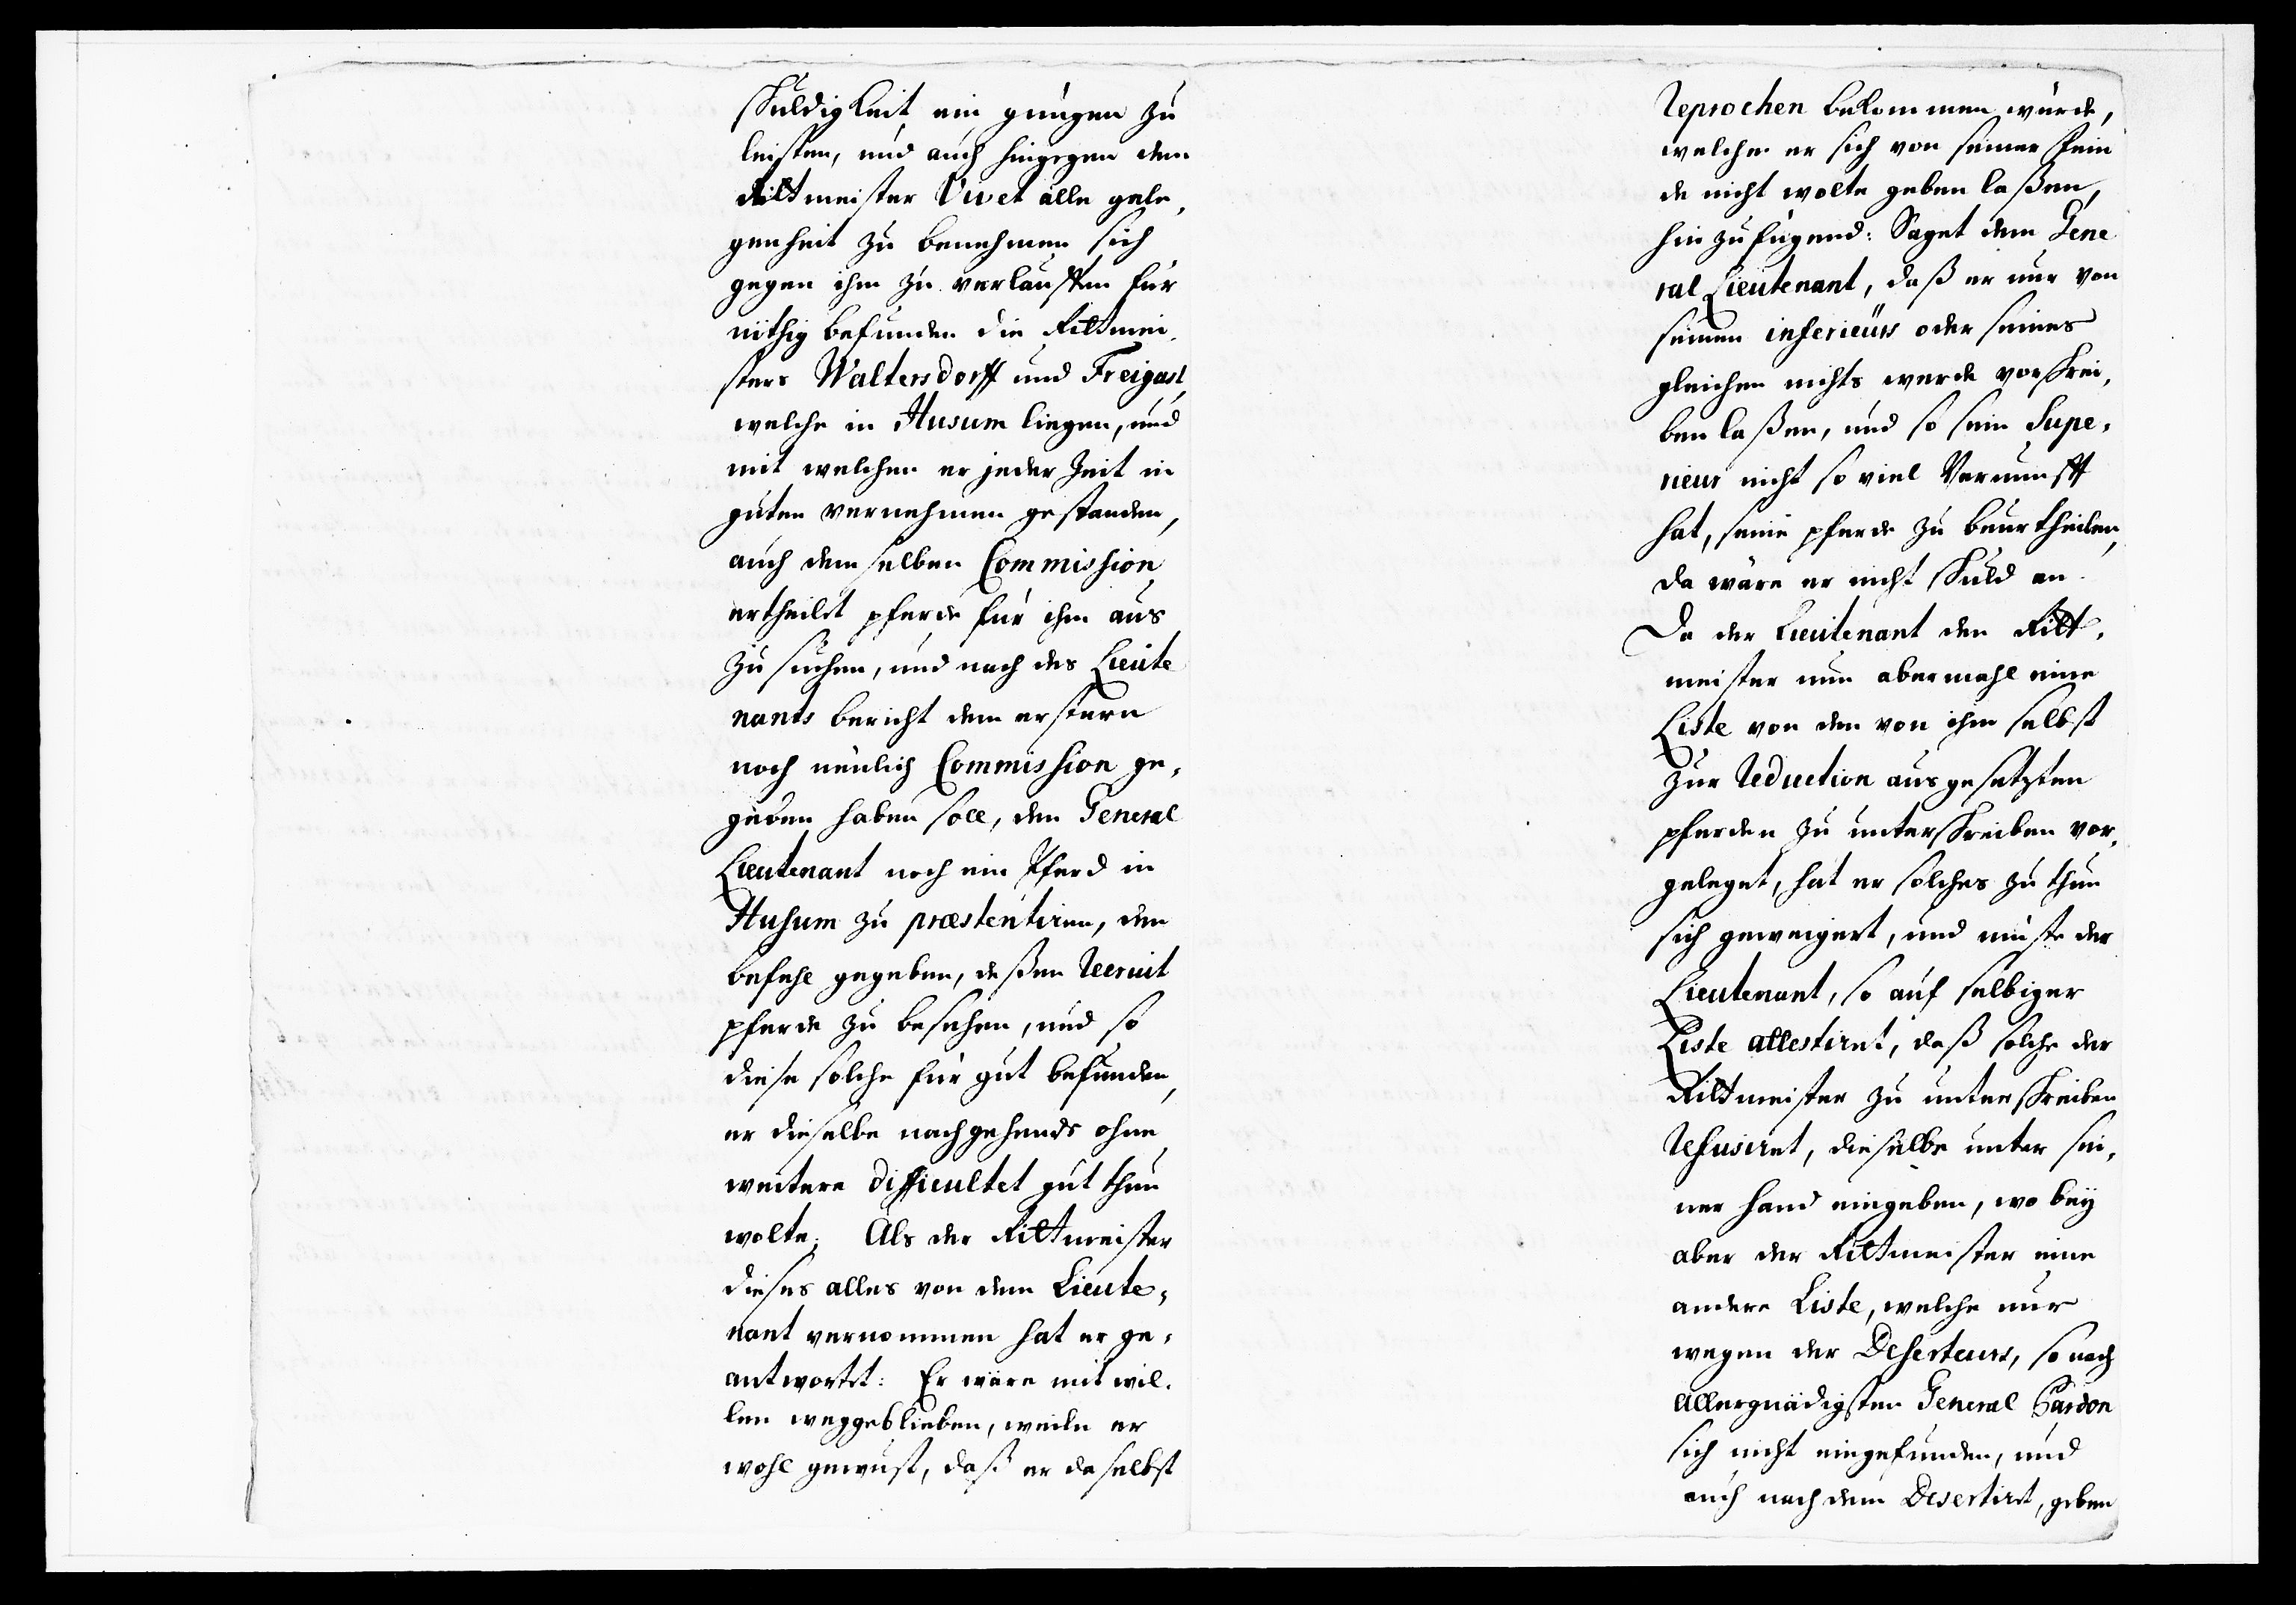 Schuldigkeit ein gnügen zu
leisten, und auch hingegen dem
Rittmeister Vivet alle gele,
genheit zu benehmen sich
gegen ihm zu verlausten für
nöthig befunden die Rittmei,
sters Waltersdorff und Freigast,
welche in Husum liegen, und
mit welchen er jeder Zeit in
guten vernehmen gestanden,
auch demselben Commission
ertheilet pferde für ihm aus
zu suchen, und nach des Lieute
nants bericht dem erstern
noch neulich Commission ge,
geben haben soll, dem General
Lieutenant noch ein Pferd in
Husum zu præstentiren, den
befehl gegeben, deßen Recruit
pferde zu besehen, und so
diese solche für gut befunden,
er dieselbe nachgehends ohne
weitere difficultet gut thun
wolte. Als der Rittmeister
dieses alles von dem Lieute,
nant vernommen hat er ge,
antwortet: Er wäre mit wil,
len weggeblieben, weiln er
wohl gewust, daß er daselbst
Reprochen bekommen würde,
welche er sich von seiner Fein
de nicht wolte geben laßen,
hinzufügend: Saget dem Gene
ral Lieutenant, daß er nur von
seinen inferieurs oder seines
gleichen nichts werde vorschrei,
ben laßen, und so sein Supe,
rieur nicht so viel Vernunfft
hat, seine pferde zu beurtheilen,
da wäre er nicht Schuld an.
Da der Lieutenant den Ritt,
meister nun abermahl eine
Liste von den von ihm selbst
zur Reduction ausgesetzten
pferden zu unterschreiben vor,
geleget, hat er solches zu thun
sich geweigert, und muste der
Lieutenant, so auf selbiger
Liste attestiret, daß solche der
Rittmeister zu unterschreiben
Refusiret, dieselbe unter sei,
ner hand eingeben, wo bey
aber der Rittmeister eine
andere Liste, welche nur
wegen der Deserteurs, so nach
Allergnädigsten General Pardon
sich nicht eingefunden, und
auch nach dem Desertiret, geben